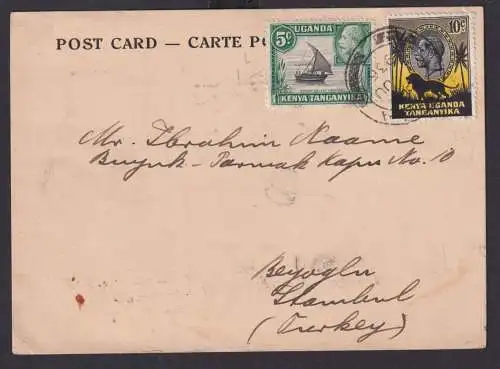 5c UGANDA
KENYA TANGANYIKA
10c
KENYA UGANDA
TANGANYIKA
POST CARD — CARTE PO
Mr. Ibrahim Naame
Buyuk-Parmak Kapu No. 10
Beyoglu
Stambul
(Turkey)